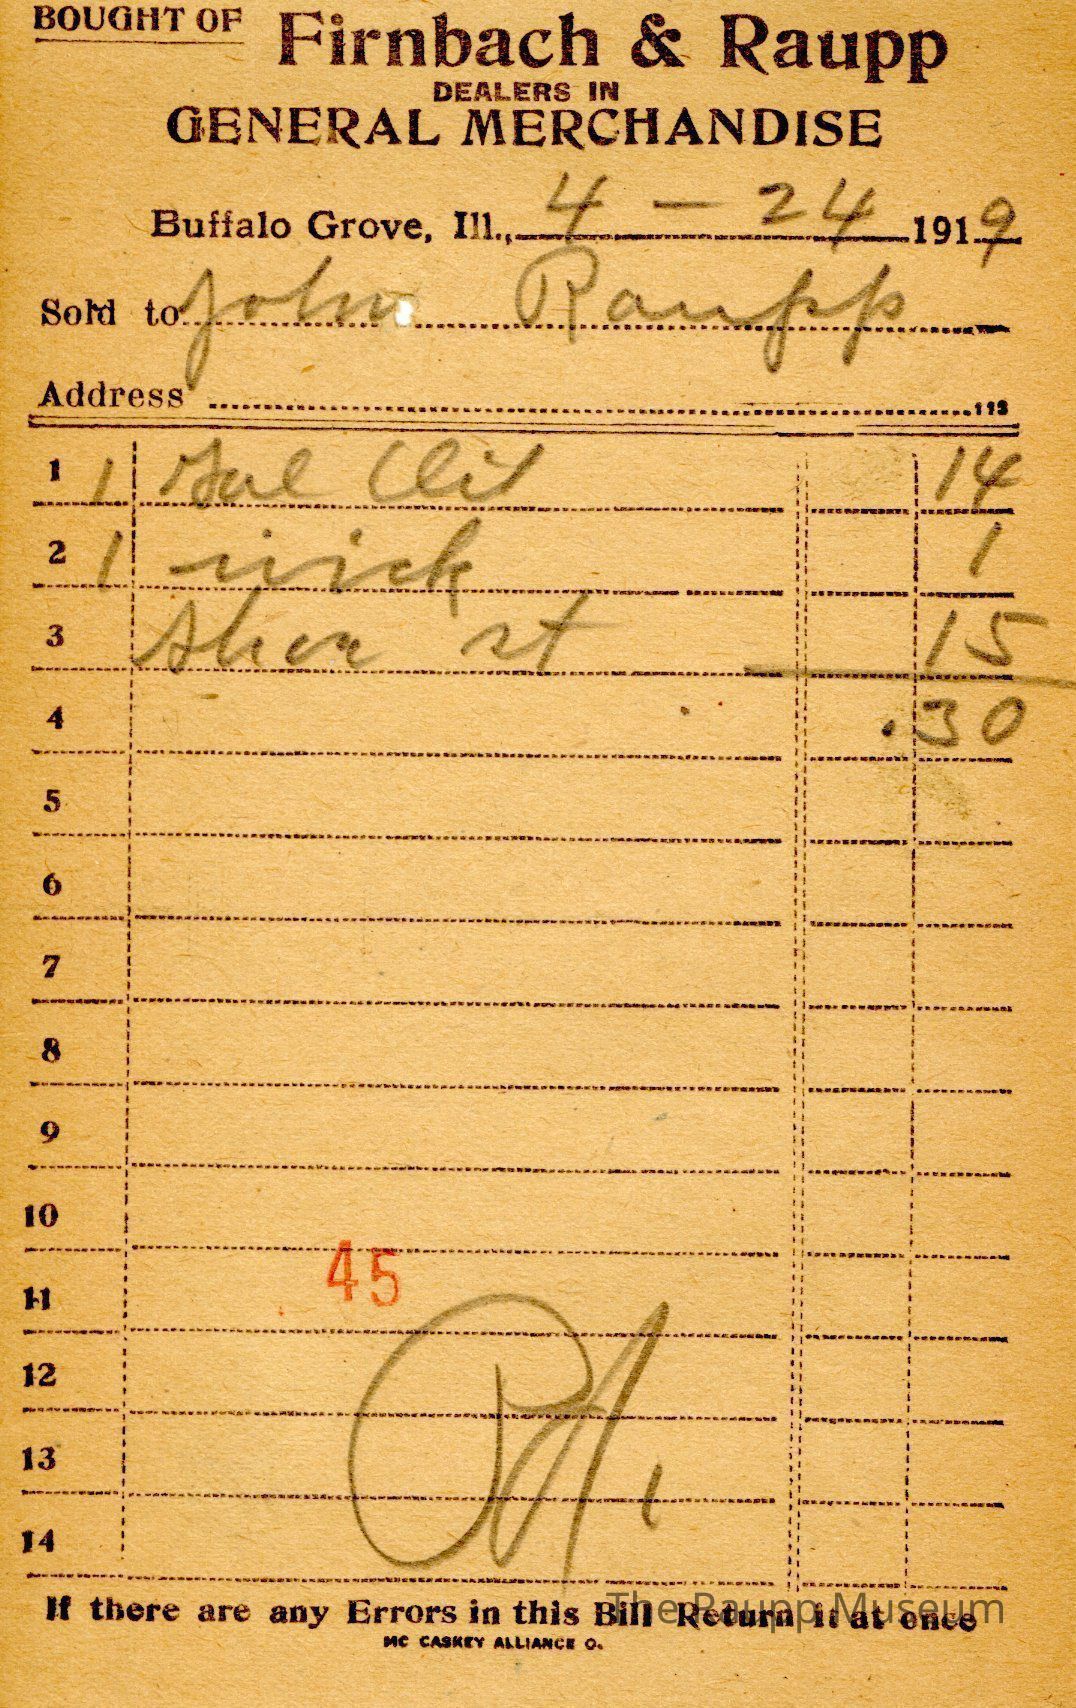 BOUGHT OF Firnbach & Raupp
DEALERS IN
GENERAL MERCHANDISE
Buffalo Grove, Ill., 4 - 24 1919
Sold to John Raupp
Address 113
1 1 Gal Oil 14
2 1 wick 1
3 Shoe st 15
4 .30
5
6
7
8
9
10
45
11
12
13
14
If there are any Errors in this Bill Return it at once
The Raupp Museum
MC CASKEY ALLIANCE O.